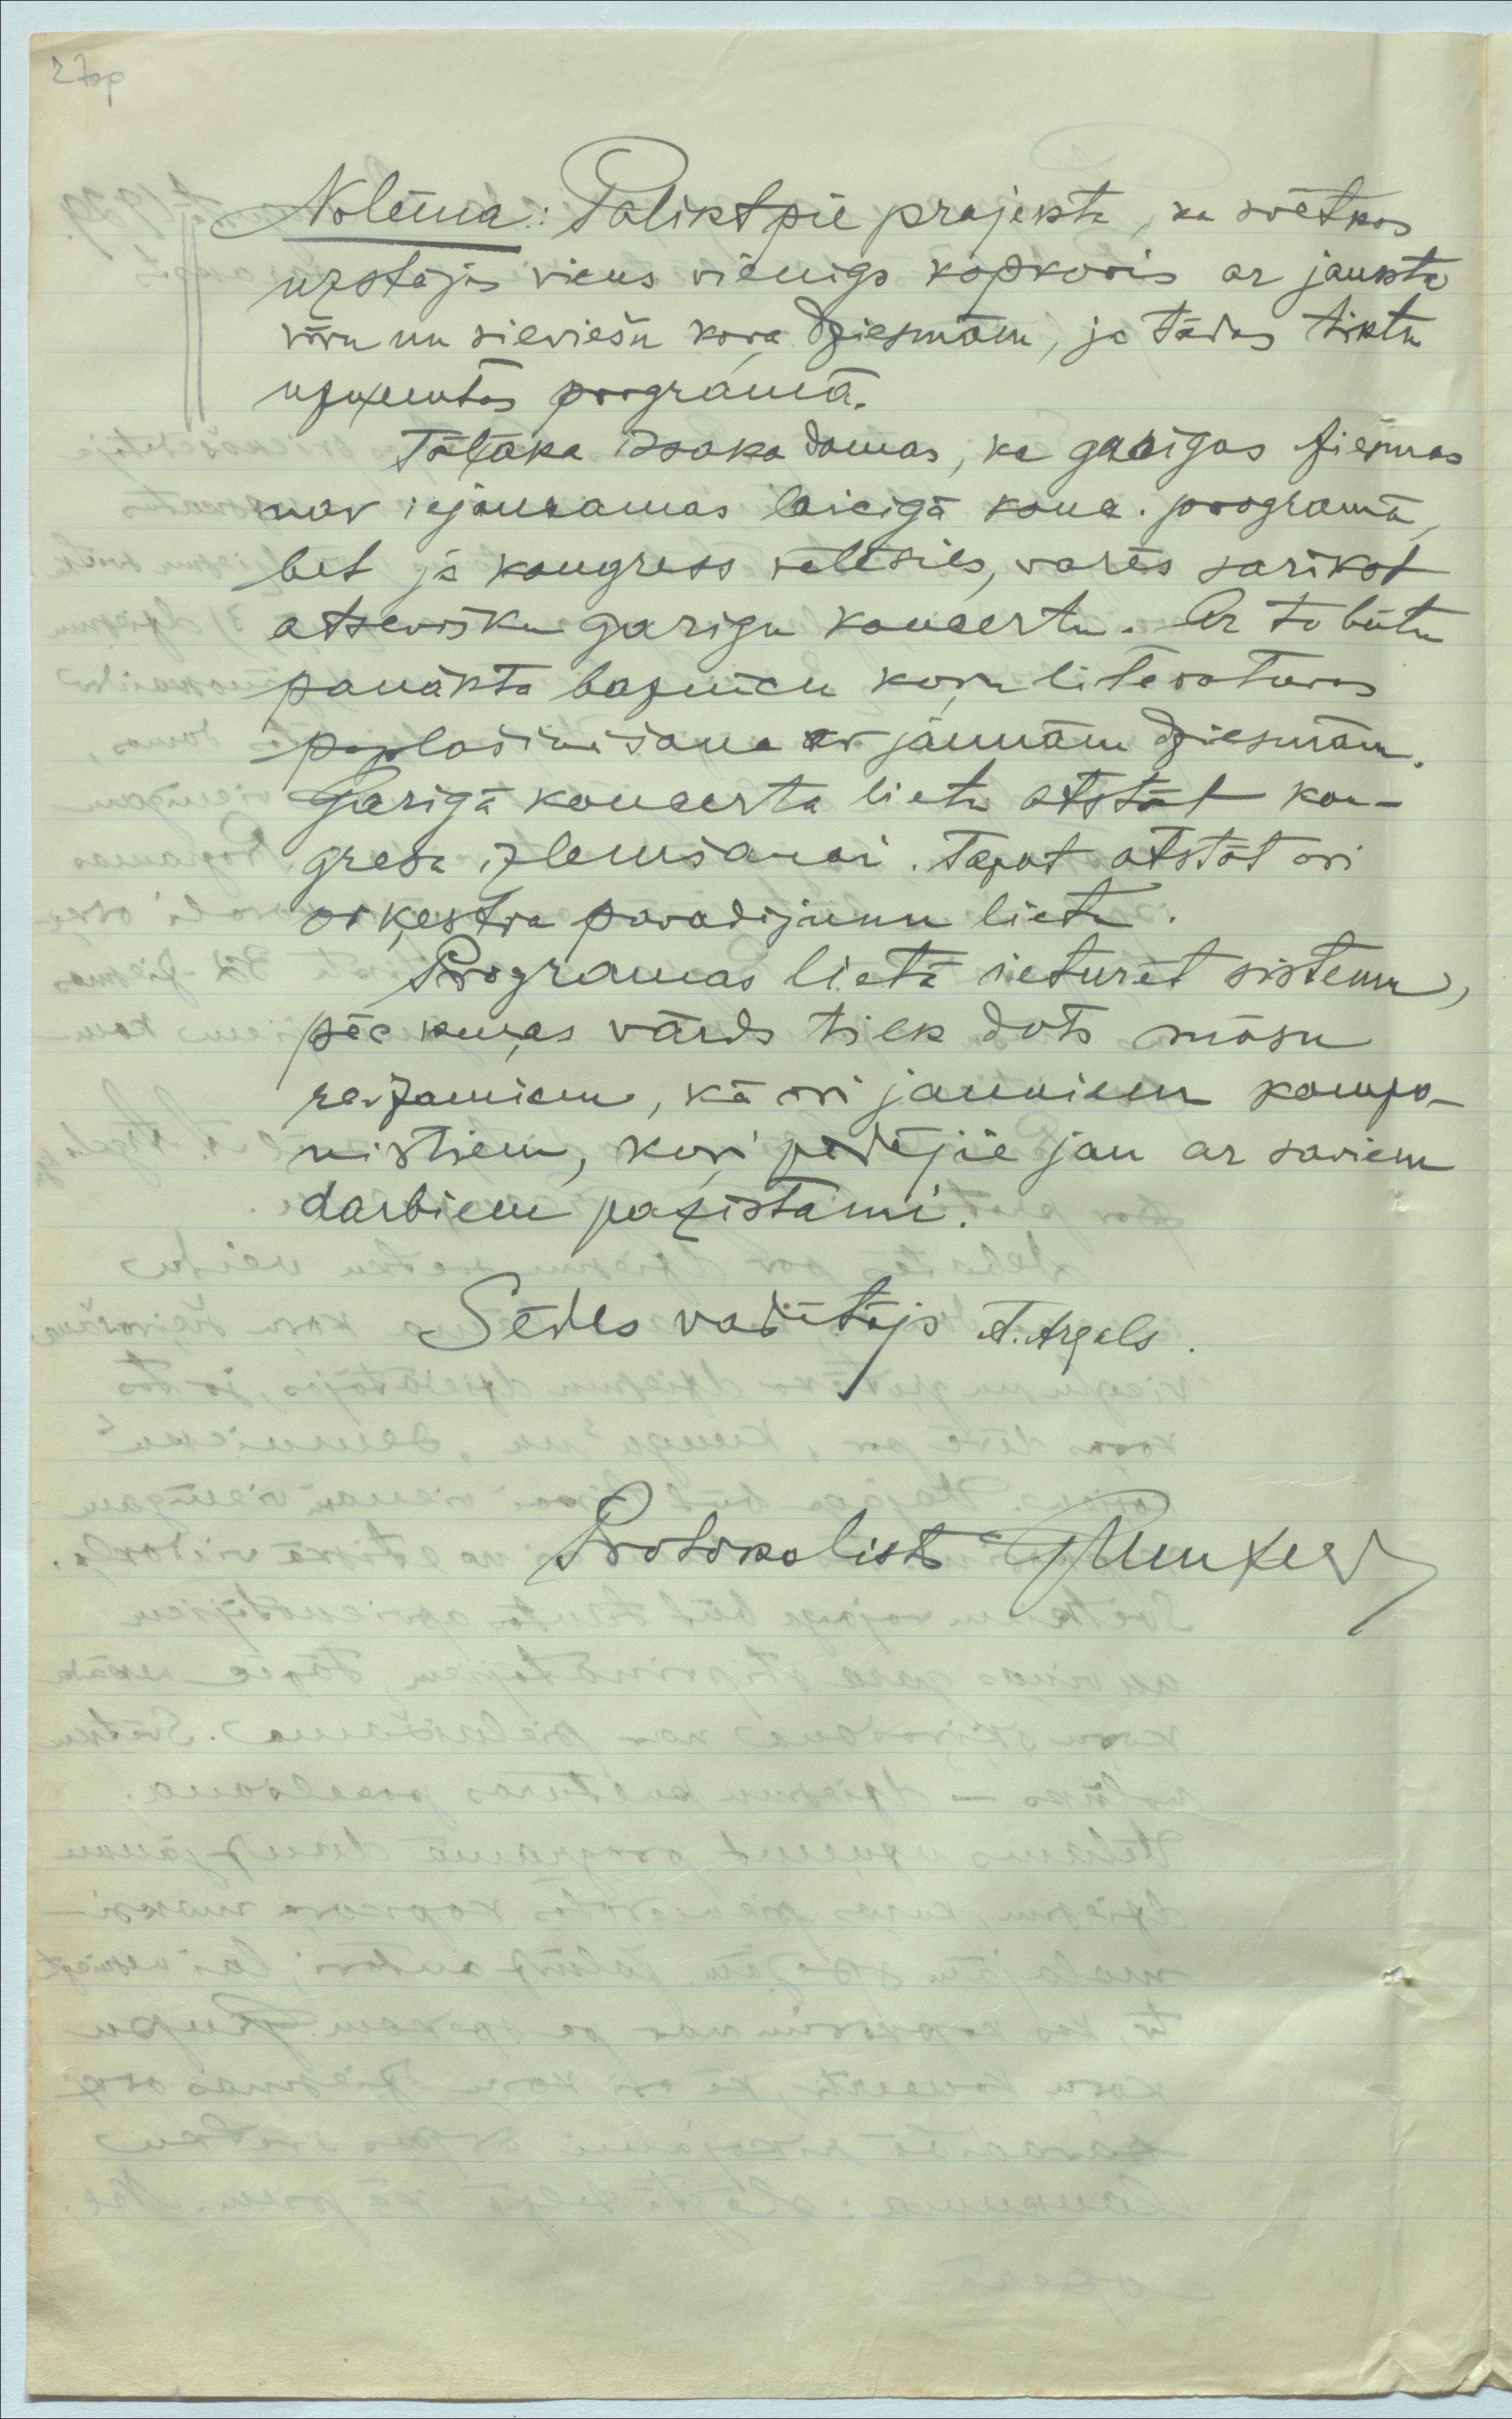 27op
Nolēma: Palikt pie projekta, ka svētkos
uzstājas viens vienīgs kopkoris ar jaukta
vīru un sieviešu koŗa dziesmām, ja tādas tiktu
uzņemtas programā.
Tāļāka izsaka domas, ka garīgas dziesmas
nav iejaucamas laicīgā konc. programā,
bet ja kongress vēlēsies, varēs sarīkot
atsevišķu garīgu koncertu. Ar to būtu
panākta baznīcu koŗu literatūras
paplašināšana ar jaunām dziesmām.
Garīgā koncerta lietu atstāt kon-
gresa izlemšanai. Tāpat atstāt arī
orķestra pavadījumu lietu.
Programas lietā ieturēt sistemu,
pēc kuŗas vārds tiek dots mūsu
redzamiem, kā arī jauniem kompo-
nistiem, kuŗi pēdējie jau ar saviem
darbiem pazīstami.
Sēdes vadītājs A. Argals.
Protokolists